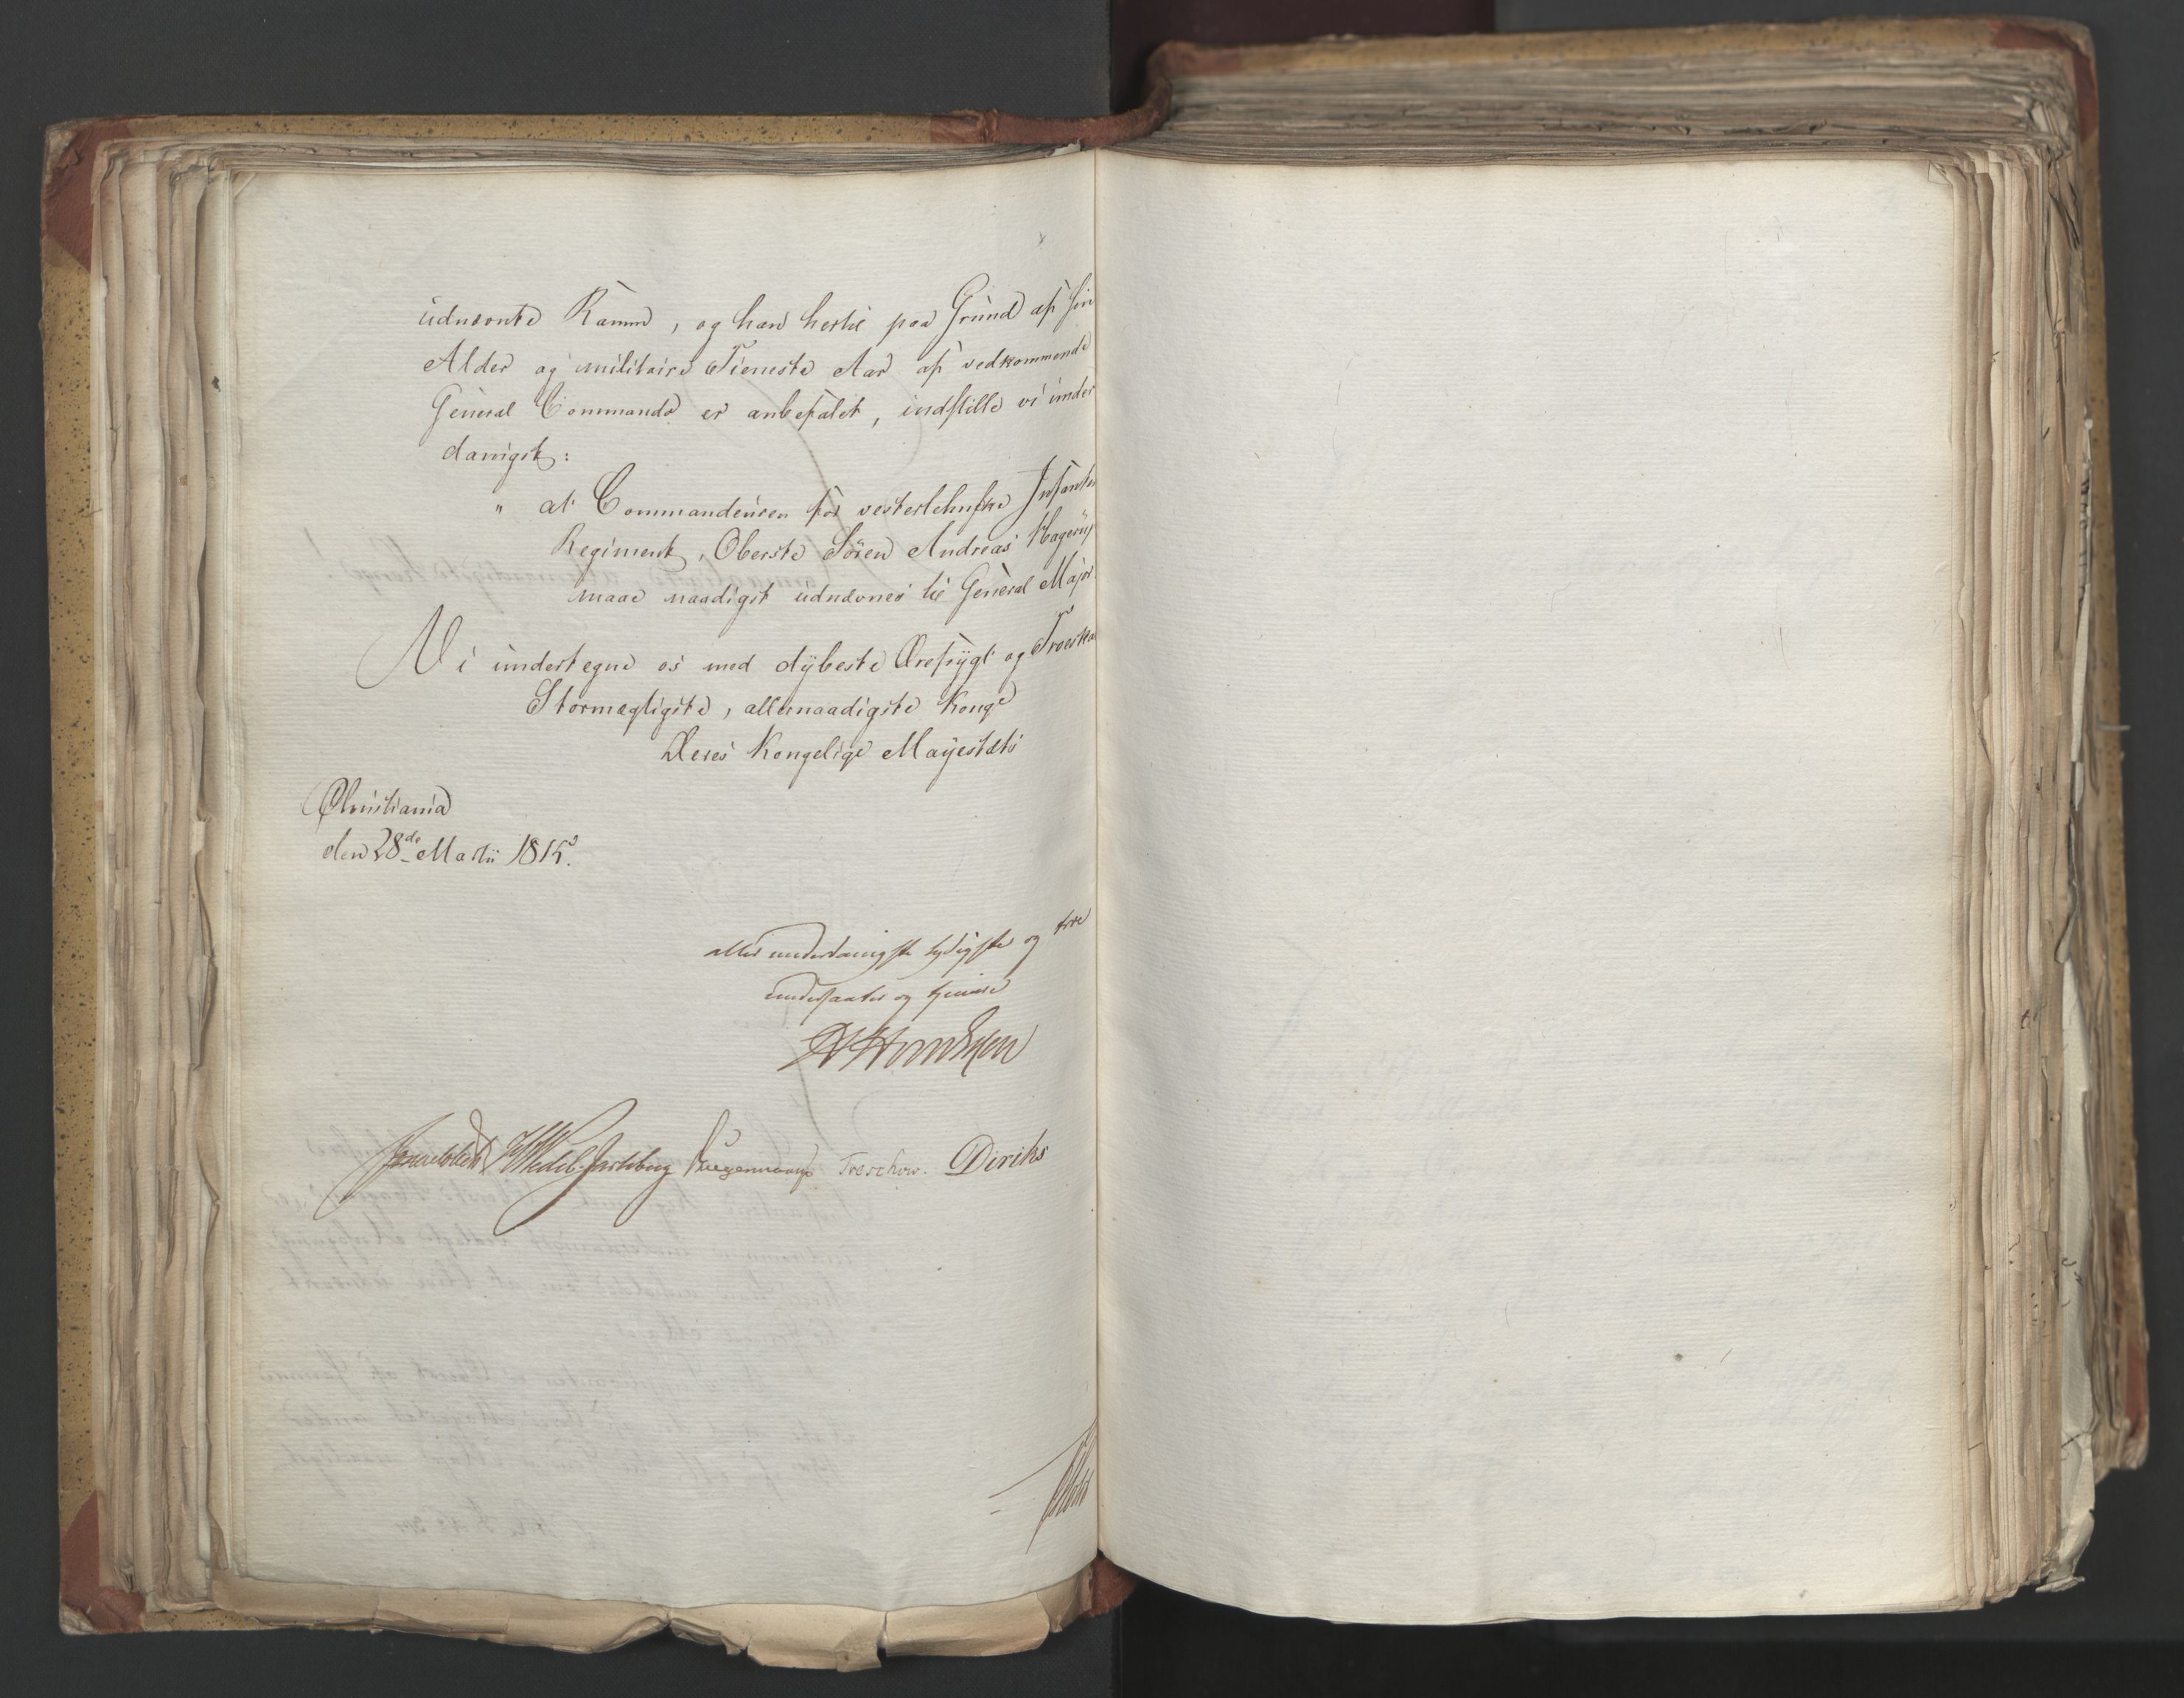 udnævnte Kammd, og han hertil paa Grund af sin
Alder og militaire Tieneste Aar af vedkommende
General Commando er anbefalet, indstille vi under
danigst:
" at Commandeuren for vesterlehnske Infanteri
Regiment, Oberste Sören Andreas Hagerup
maae naadigst udnævnes til General Major.
Vi undertegne os med dÿbeste Ærefrÿgt og Troeska
Stormægtigste, allernaadigste Konge
Deres Kongelige Mayestæts
Christiania
den 28de Martii 1815.
aller underdanigste lydigste og troe
undersaatter og tjenere
Sommerhielm HWedel-Jarlsberg Krogh Treschow. Diriks